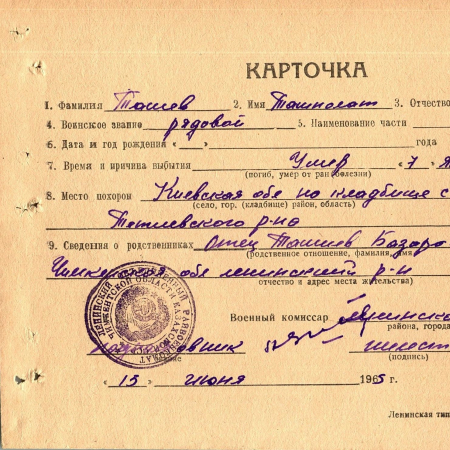 КАРТОЧКА
1. Фамилия Ташев 2. Имя Ташполат 3. Отчество
4. Воинское звание рядовой 5. Наименование части
6. Дата и год рождения « » года
7. Время и причина выбытия Умер « 7 » я
(погиб, умер от ран болезни)
8. Место похорон Киевская обл на кладбище с
(село, гор. (кладбище) район, область)
Тетиевского р-на
9. Сведения о родственниках отец Ташев Базаро
(родственное отношение, фамилия, имя
Чимкентская обл ленинский р-н
отчество и адрес места жительства)
Военный комиссар Ленинско
района, города
подполковник
(подпись)
« 15 » июня 1965 г.
Ленинская тип